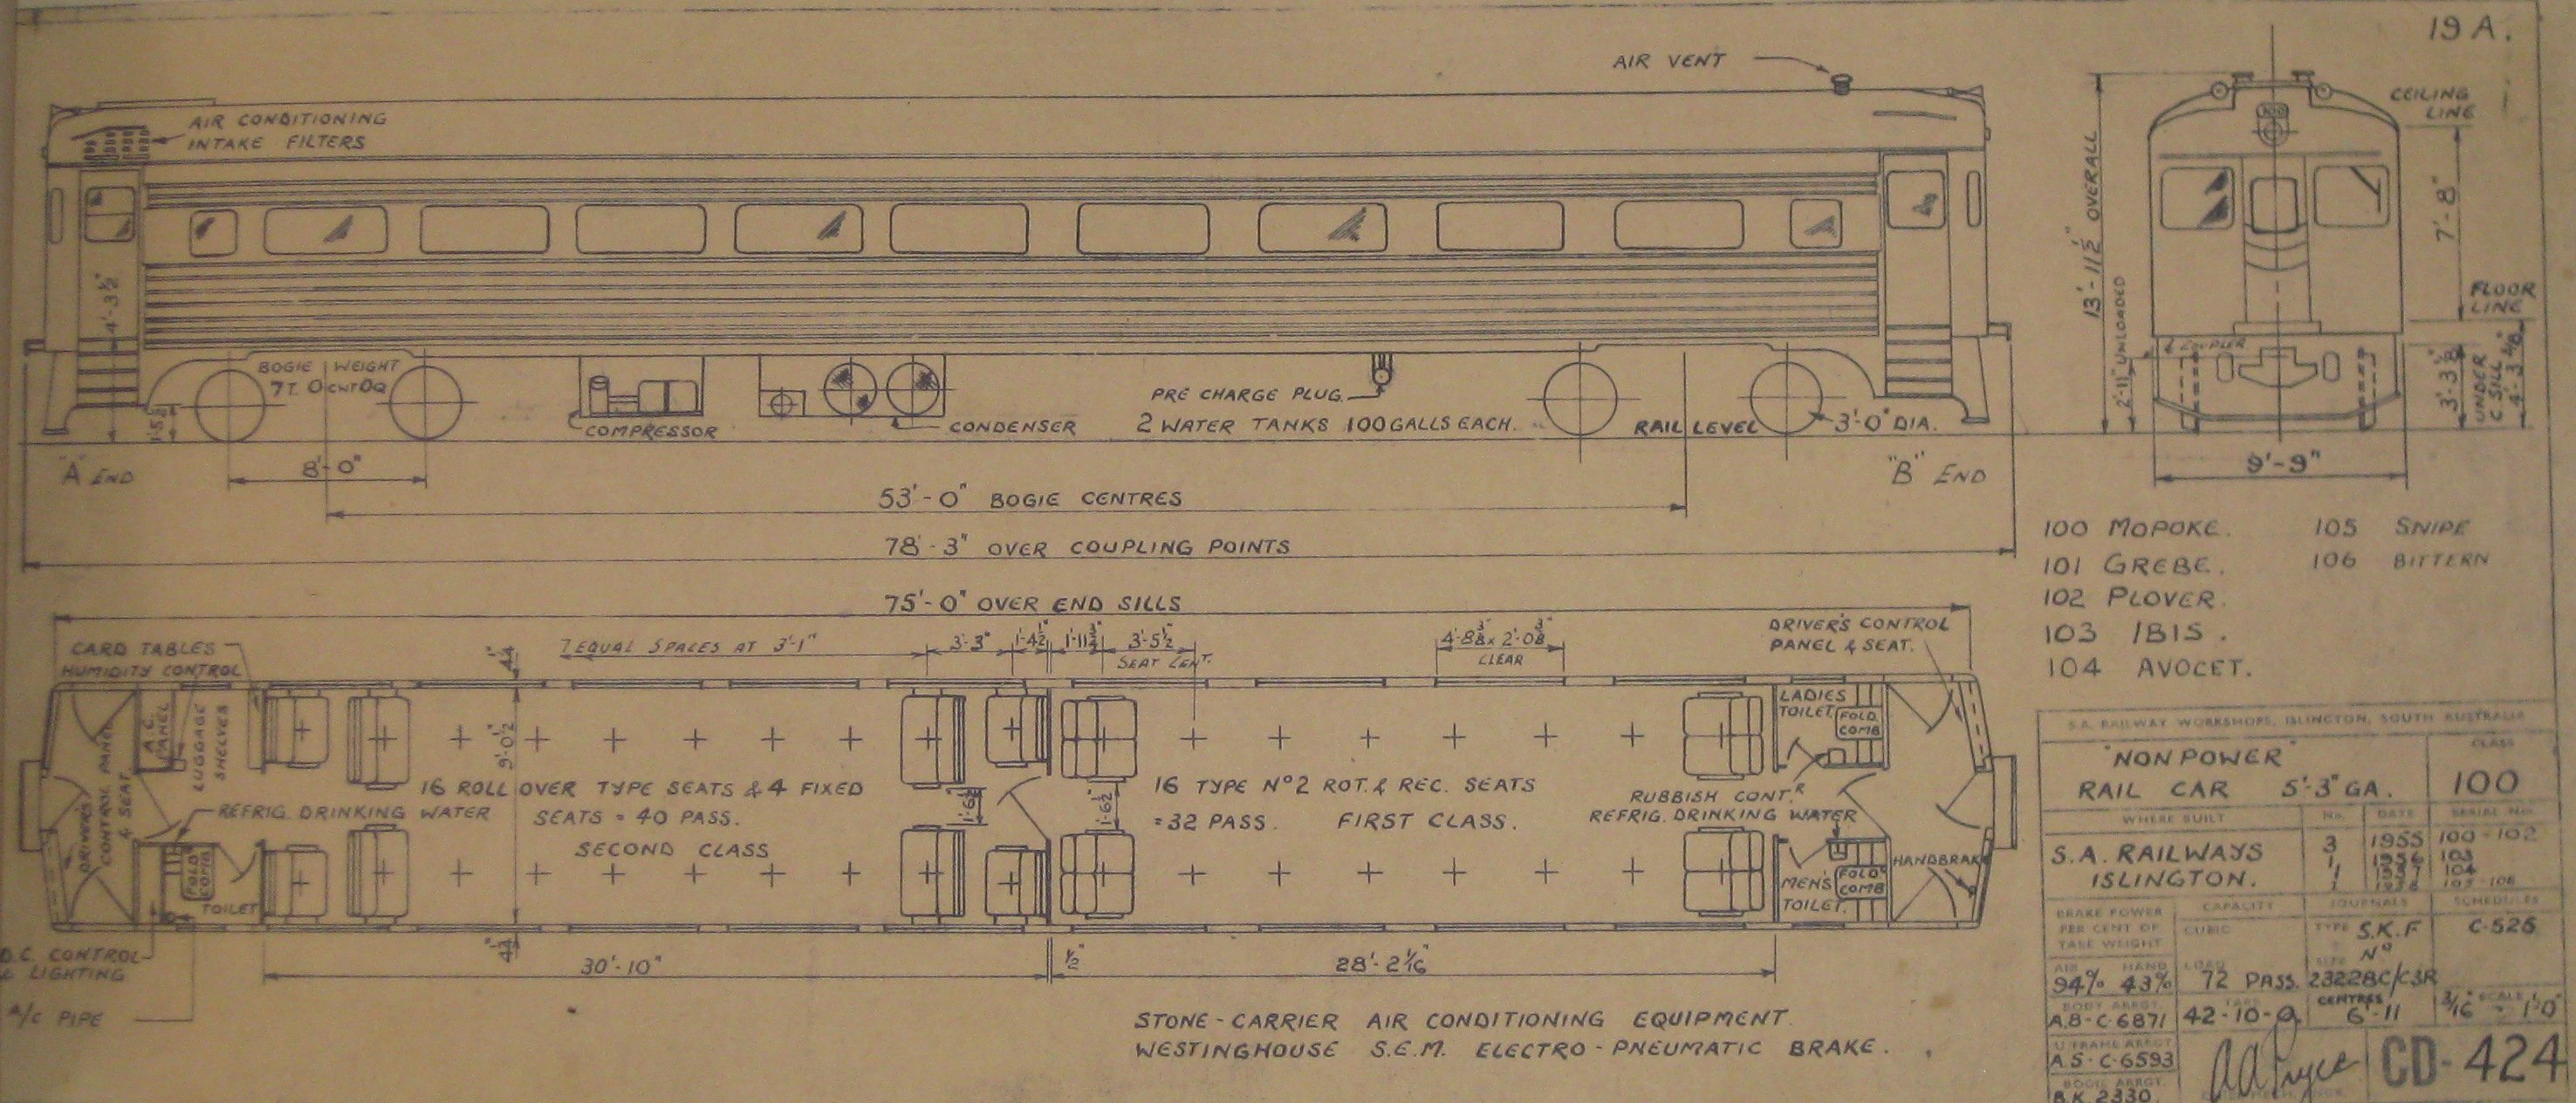 19 A.
AIR VENT
CEILING
LINE
AIR CONDITIONING
INTAKE FILTERS
13'-11½" OVERALL
7'-8"
FLOOR
LINE
4'-3½"
2'-11" UNLOADED
₵ COUPLER
UNDER
C SILL
BOGIE WEIGHT
7T. 0CWT 0Q
COMPRESSOR
CONDENSER
PRE CHARGE PLUG.
2 WATER TANKS 100 GALLS EACH.
RAIL LEVEL
3'-0" DIA.
"A" END
8'-0"
"B" END
9'-9"
53'-0" BOGIE CENTRES
78'-3" OVER COUPLING POINTS
75'-0" OVER END SILLS
100 MOPOKE.
101 GREBE.
102 PLOVER.
103 IBIS.
104 AVOCET.
105 SNIPE
106 BITTERN
CARD TABLES
HUMIDITY CONTROL
7 EQUAL SPACES AT 3'-1"
3'-3"
1'-4½"
1'-11¾"
3'-5½"
SEAT CENT.
4'-8⅜" x 2'-0⅜"
CLEAR
DRIVER'S CONTROL
PANEL & SEAT.
A.C.
PANEL
LUGGAGE
SHELVES
DRIVERS
CONTROL PANEL
& SEAT
9'-0½"
LADIES
TOILET.
FOLD.
COMB
16 ROLL OVER TYPE SEATS & 4 FIXED
SEATS = 40 PASS.
SECOND CLASS
REFRIG. DRINKING WATER
1'-6½"
1'-6½"
16 TYPE Nº2 ROT. & REC. SEATS
=32 PASS. FIRST CLASS.
RUBBISH CONT.R
REFRIG. DRINKING WATER
HANDBRAKE
FOLD
COMB
TOILET
MEN'S
TOILET.
FOLD
COMB
D.C. CONTROL
& LIGHTING
A/C PIPE
30'-10"
½"
28'-2 1/16"
STONE-CARRIER AIR CONDITIONING EQUIPMENT.
WESTINGHOUSE S.E.M. ELECTRO-PNEUMATIC BRAKE.
S.A. RAILWAY WORKSHOPS, ISLINGTON, SOUTH AUSTRALIA
"NON POWER"
RAIL CAR 5'-3" GA.
CLASS
100
WHERE BUILT
No.
DATE
SERIAL Nos.
S.A. RAILWAYS
ISLINGTON.
3 1955 100-102
1 1956 103
1 1957 104
105-106
BRAKE POWER
PER CENT OF
TARE WEIGHT
CAPACITY
JOURNALS
SCHEDULES
CUBIC
TYPE S.K.F
Nº
C-526
AIR HAND
94% 43%
LOAD
72 PASS.
SIZE
23228C/C3R
BODY ARRGT.
A.B-C-6871
TARE
42-10-0
CENTRES
6'-11
SCALE
3/16" = 1'0"
U'FRAME ARRGT
A.S-C-6593
BOGIE ARRGT.
B.K. 2330
CD-424